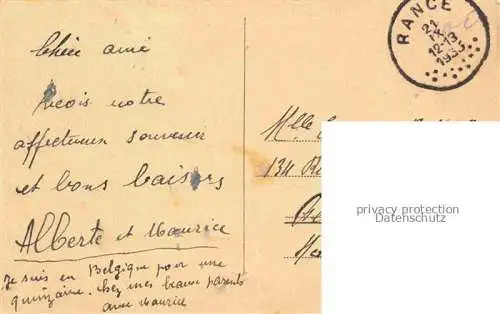 Chère amie
reçois notre
affectueux souvenir
et bons baisers
Alberte et Maurice
Je suis en Belgique pour une
quinzaine. chez mes beaux parents
avec Maurice
RANCE
21
IX
12-13
1935
Mlle
134 R
privacy protection
Datenschutz